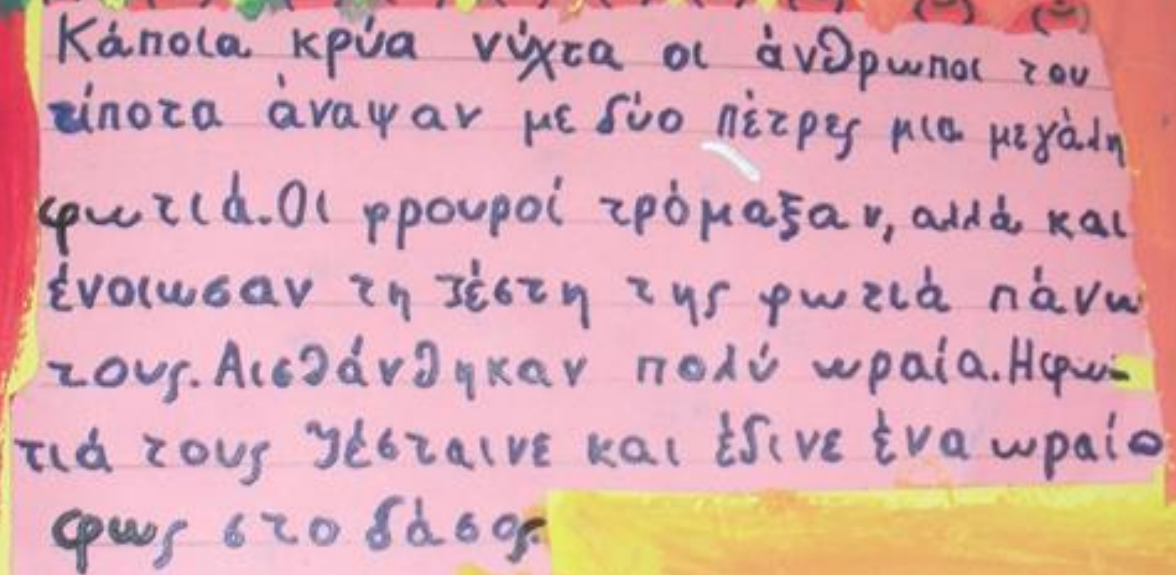 Κάποια κρύα νύχτα οι άνθρωποι του
τίποτα άναψαν με δύο πέτρες μια μεγάλη
φωτιά. Οι φρουροί τρόμαξαν, αλλά και
ένοιωσαν τη ζέστη της φωτιά πάνω
τους. Αισθάνθηκαν πολύ ωραία. Η φω-
τιά τους ζέσταινε και έδινε ένα ωραίο
φως στο δάσος.